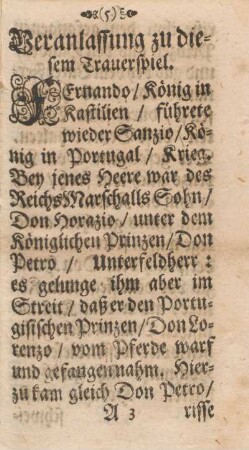 (5)
Veranlassung zu die-
sem Trauerspiel.
FErnando/ König in
Kastilien / führete
wieder Sanzio/Kö-
nig in Portugal/ Krieg.
Bey jenes Heere war des
ReichsMarschalls Sohn/
Don Horazio / unter dem
Königlichen Prinzen/Don
Petro / Unterfeldherr :
es gelunge ihm aber im
Streit / daß er den Portu-
gisischen Prinzen/Don Lo-
renzo/ vom Pferde warf
und gefangen nahm. Hier-
zu kam gleich Don Petro/
A 3 risse